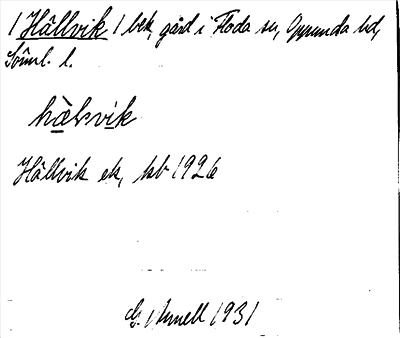 1 Hållvik 1 bek, gård i Floda sn, Oppunda hd,
Söml. l.
hȧlvik
Hållvik ek, kb 1926
G. Annell 1931